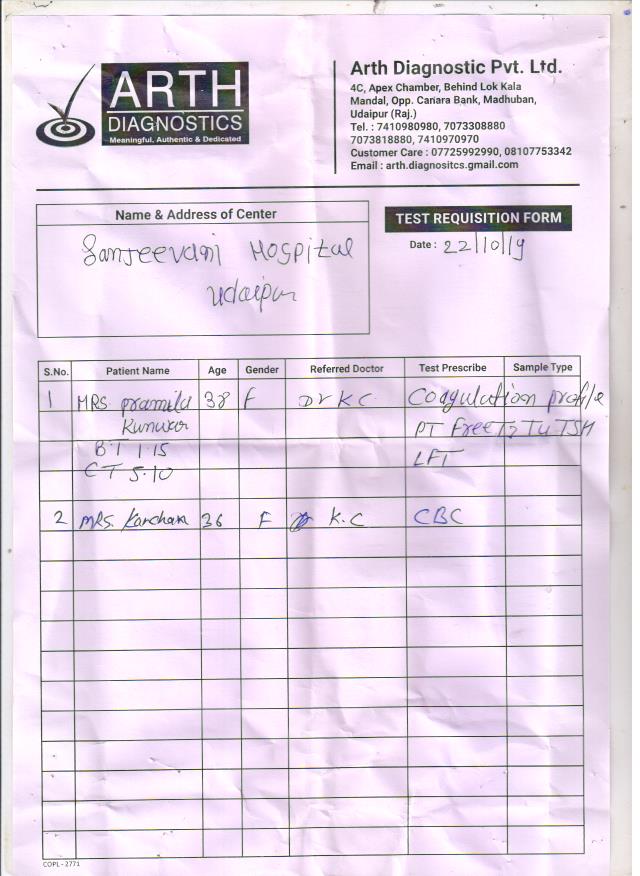 ARTH
DIAGNOSTICS
Meaningful, Authentic & Dedicated
Arth Diagnostic Pvt. Ltd.
4C, Apex Chamber, Behind Lok Kala
Mandal, Opp. Canara Bank, Madhuban,
Udaipur (Raj.)
Tel. : 7410980980, 7073308880
7073818880, 7410970970
Customer Care : 07725992990, 08107753342
Email : arth.diagnositcs.gmail.com
Name & Address of Center
Sanjeevani Hospital
Udaipur
TEST REQUISITION FORM
Date : 22/10/19
S.No. Patient Name Age Gender Referred Doctor Test Prescribe Sample Type
1 MRS Pramila 38 F Dr K C Coagulation profile
Kunwar PT Free T3 T4 TSH
BT 1.15 LFT
CT 5.10
2 MRS. Kanchan 36 F K.C CBC
COPL - 2771